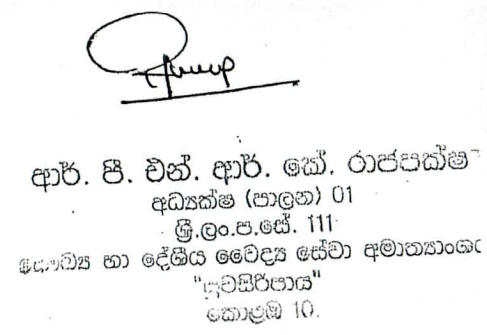 ආර්. පී. එන්. ආර්. කේ. රාජපක්ෂ
අධ්‍යක්ෂ (පාලන) 01
ශ්‍රී.ලං.ප.සේ. 111
සෞඛ්‍ය හා දේශීය වෛද්‍ය සේවා අමාත්‍යාංශය
"සුවසිරිපාය"
කොළඹ 10.